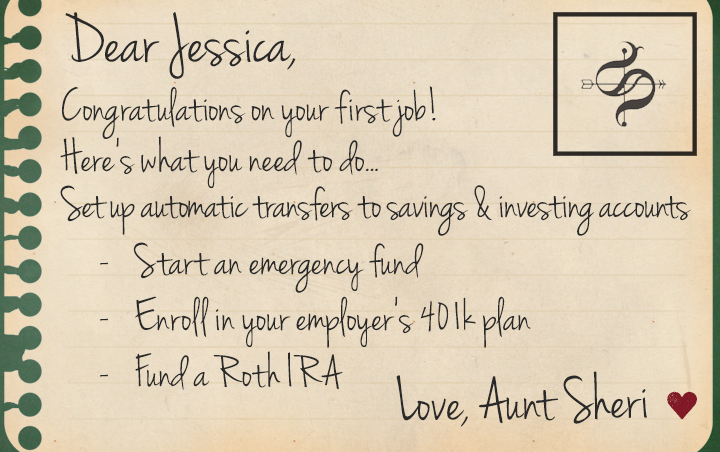 Dear Jessica,
Congratulations on your first job!
Here's what you need to do...
Set up automatic transfers to savings & investing accounts
- Start an emergency fund
- Enroll in your employer's 401k plan
- Fund a Roth IRA
Love, Aunt Sheri